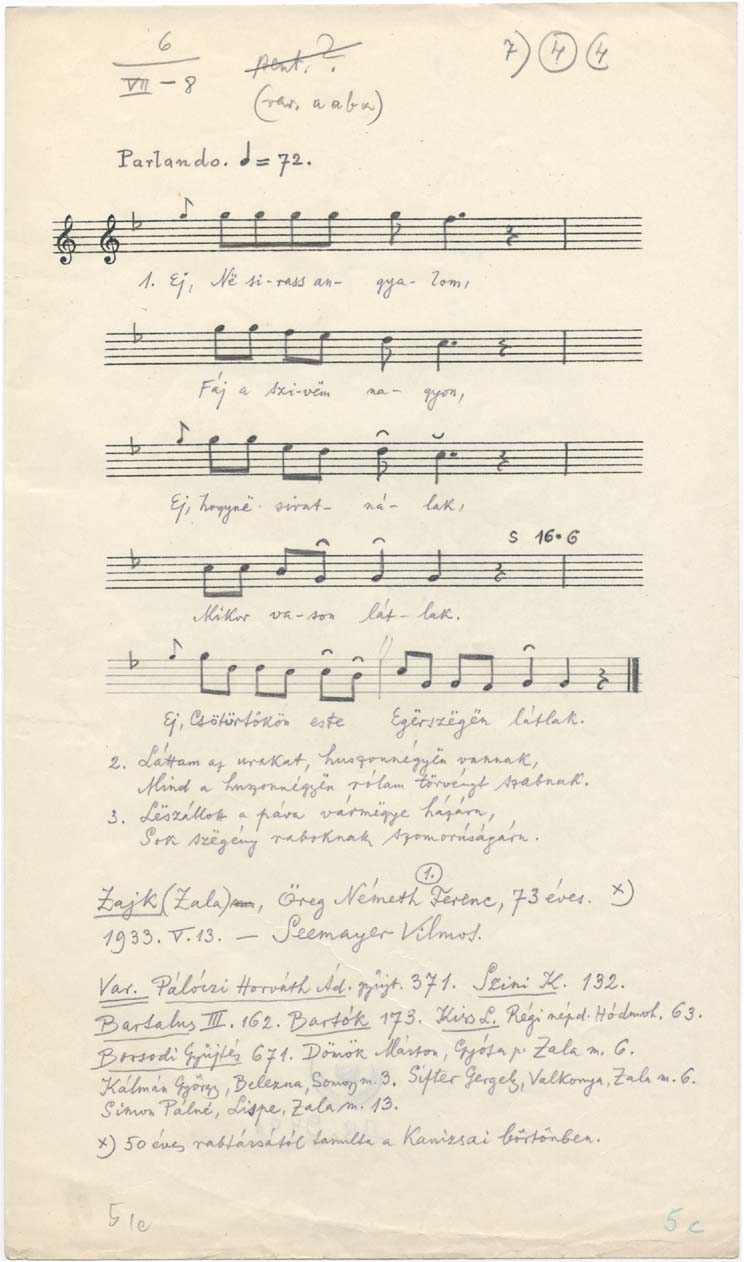 6
VII - 8
pent. ?
(var. a a b a)
7) 4 (4
Parlando. = 72.
1. Ej, Në si-rass an- gya- lom,
Fáj a szi-vëm na- gyon,
Ej, hogynë sirat- ná- lak,
S 16·6
Mikor va-son lát-lak.
Ej, Csötörtökön este Egërszëgën látlak.
2. Láttam az urakat, huszonnégyën vannak,
Mind a huszonnégyën rólam törvényt szabnak.
3. Lëszállott a páva vármëgye házára,
Sok szëgény raboknak szomorúságára.
1.
Zajk (Zala), Öreg Németh Ferenc, 73 éves. x)
1933. V. 13. — Seemayer Vilmos.
Var. Pálóczi Horváth Ád. gyűjt. 371. Szini K. 132.
Bartalus III. 162. Bartók 173. Kiss L. Régi népd. Hódmvh. 63.
Borsodi Gyűjtés 671. Dömök Márton, p. Zala m. 6.
Kálmán György, Belezna, Somogy m. 3. Sifter Gergely, Valkonya, Zala m. 6.
Simon Pálné, Lispe, Zala m. 13.
x) 50 éves rabtársától tanulta a Kanizsai börtönben.
5/c
5c